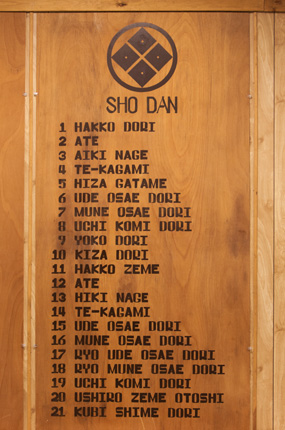 SHO DAN
1 HAKKO DORI
2 ATE
3 AIKI NAGE
4 TE-KAGAMI
5 HIZA GATAME
6 UDE OSAE DORI
7 MUNE OSAE DORI
8 UCHI KOMI DORI
9 YOKO DORI
10 KIZA DORI
11 HAKKO ZEME
12 ATE
13 HIKI NAGE
14 TE-KAGAMI
15 UDE OSAE DORI
16 MUNE OSAE DORI
17 RYO UDE OSAE DORI
18 RYO MUNE OSAE DORI
19 UCHI KOMI DORI
20 USHIRO ZEME OTOSHI
21 KUBI SHIME DORI